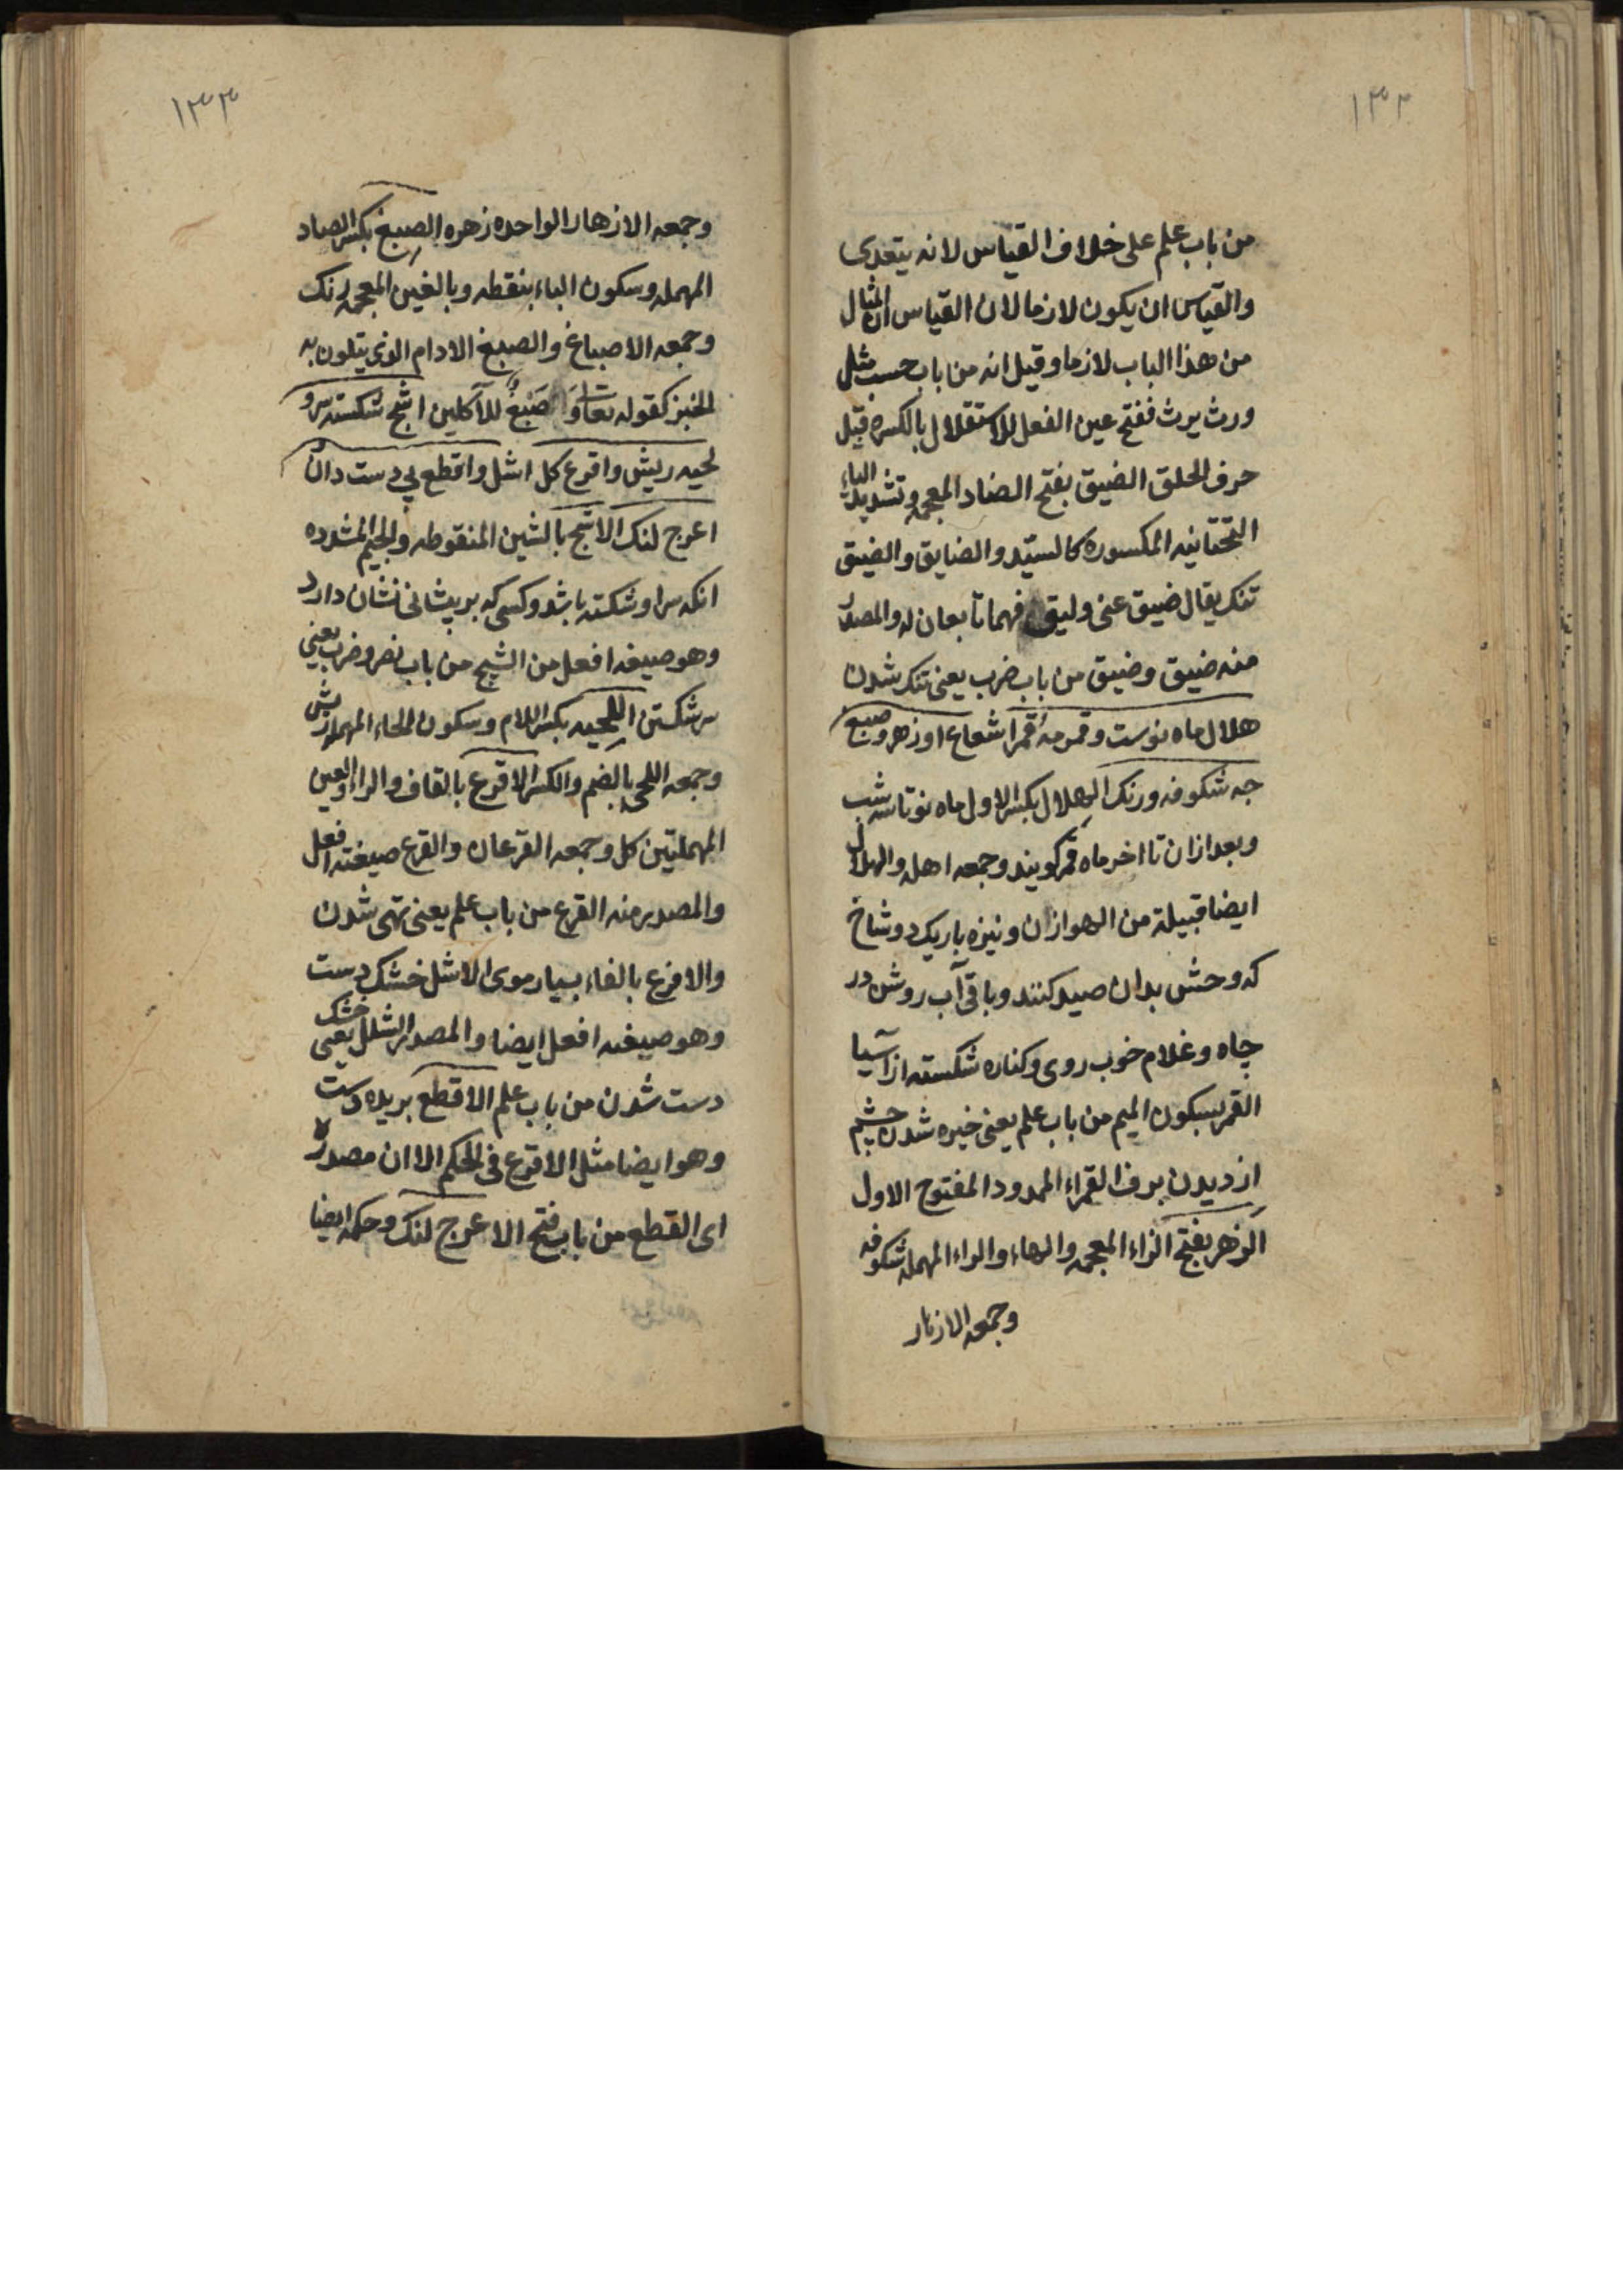 ١٣٢
من باب علم على خلاف القياس لانه يتعدى
والقياس ان يكون لازما لان القياس ان المثال
من هذا الباب لازما وقيل انه من باب حسب مثل
ورث يرث ففتح عين الفعل للاستقلال بالكسره قبل
حرف الحلق الضيق بفتح الضاد المعجمه وتشديد الياء
التحتانيه المكسوره كالسيّد والضايق والضيق
تنك يقال ضيق عنى وليق فهما تابعان له والمصدر
منه ضيق وضيق من باب ضرب يعنى تنك شدن
هلال ماه نوست وقمر مه قمرا شعاع او زهر و صبغ
جه شكوفه ورنك الهلال بكسر الاول ماه نو تا سه شب
وبعد ازان تا اخر ماه قمر كويند وجمعه اهله والهلال
ايضا قبيلة من الهوازان ونيزه باريك دو شاخ
كه وحش بدان صيد كنند وباقى آب روشن در
چاه وغلام خوب روى وكناره شكسته از آسيا
القمر بسكون الميم من باب علم يعنى خيره شدن چشم
از ديدن برف القمراء الممدود المفتوح الاول
الزهر بفتح الزاء المعجمه والهاء والراء المهمله شكوفه
وجمعه الازهار
١٣٣
وجمعه الازهار الواحده زهره الصبغ بكسر الصاد
المهمله وسكون الباء بنقطه وبالغين المعجمه رنك
وجمعه الاصباغ والصبغ الادام الذى يتلون به
الخبز كقوله تعالى وَصَبْغٌ للآكلين اشج شكسته سر و
لحيه ريش واقرع كل اشل واقطع بى دست دان
اعرج لنك الاشج بالشين المنقوطه والجيم المشدده
انكه سر او شكسته باشد وكسى كه بر پيشانى نشان دارد
وهو صيغه افعل من الشج من باب نصر وضرب يعنى
سر شكستن اللحيه بكسر اللام وسكون الحاء المهمله ريش
وجمعه اللحى بالضم والكسر الاقرع بالقاف والراء والعين
المهملتين كل وجمعه القرعان والقرع صيغته افعل
والمصدر منه القرع من باب علم يعنى تهى شدن
والافرع بالفاء بسيار موى الاشل خشك دست
وهو صيغه افعل ايضا والمصدر الشلل يعنى خشك
دست شدن من باب علم الاقطع بريده دست
وهو ايضا مثل الاقرع فى الحكم الا ان مصدره
اى القطع من باب فتح الاعرج لنك وحكمه ايضا